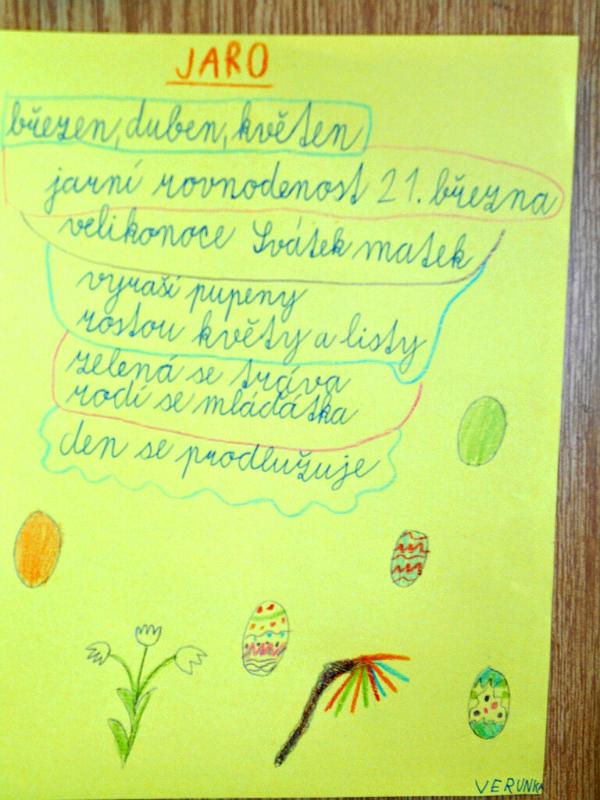 JARO
březen, duben, květen
jarní rovnodenost 21. března
velikonoce Svátek matek
vyraší pupeny
rostou květy a listy
zelená se tráva
rodí se mláďátka
den se prodlužuje
VERUNKA